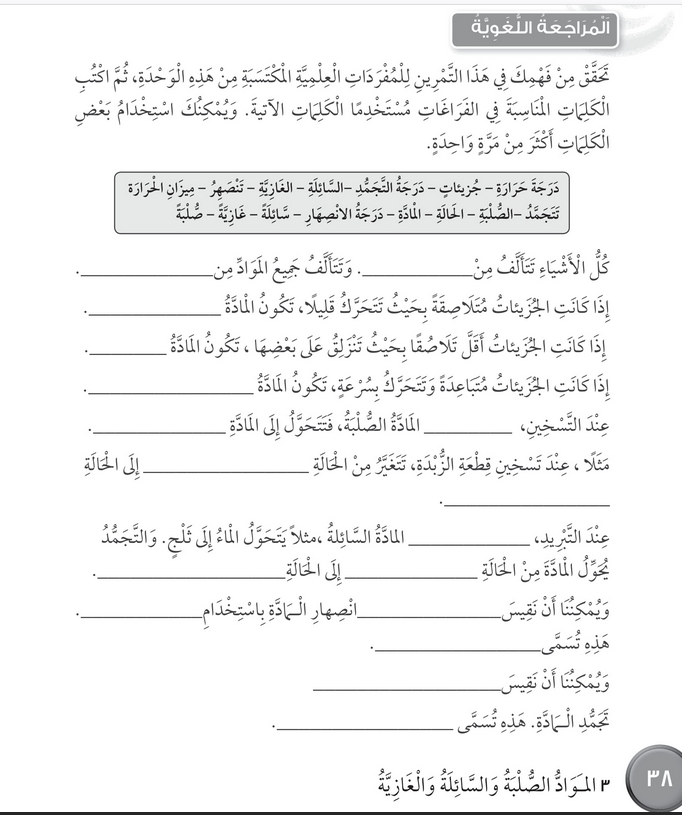 الْمُرَاجَعَةُ اللُّغَوِيَّةُ
تَحَقَّقْ مِنْ فَهْمِكَ فِي هَذَا التَّمْرِينِ لِلْمُفْرَدَاتِ الْعِلْمِيَّةِ الْمُكْتَسَبَةِ مِنْ هَذِهِ الْوَحْدَةِ، ثُمَّ اكْتُبِ
الْكَلِمَاتِ الْمُنَاسِبَةَ فِي الفَرَاغَاتِ مُسْتَخْدِمًا الْكَلِمَاتِ الآتِيةَ. وَيُمْكِنُكَ اسْتِخْدَامُ بَعْضِ
الْكَلِمَاتِ أَكْثَرَ مِنْ مَرَّةٍ وَاحِدَةٍ.
دَرَجَةَ حَرَارَةِ – جُزَيئاتٍ – دَرَجَةُ التَّجَمُّدِ –السَّائِلَةِ – الغَازِيَّةِ – تَنْصَهِرُ – مِيزَانِ الْحَرَارَة
تَتَجَمَّدُ –الصُّلْبَةِ – الحَالَةِ – المَادَّةِ – دَرَجَةُ الانْصِهَارِ – سَّائِلَةً – غَازِيَّةً – صُّلْبَةً
كُلُّ الْأَشْيَاءِ تَتَأَلَّفُ مِنْ ____________. وَتَتَأَلَّفُ جَمِيعُ المَوَادِّ مِن ____________.
إِذَا كَانَتِ الْجُزَيئاتُ مُتَلَاصِقَةً بِحَيْثُ تَتَحَرَّكُ قَلِيلًا، تَكُونُ الْمَادَّةُ ____________.
إِذَا كَانَتِ الْجُزَيئاتُ أَقَلَّ تَلَاصُقًا بِحَيْثُ تَنْزَلِقُ عَلَى بَعْضِهَا ، تَكُونُ الْمَادَّةُ ____________.
إِذَا كَانَتِ الْجُزَيئاتُ مُتَبَاعِدَةً وَتَتَحَرَّكُ بِسُرْعَةٍ، تَكُونُ المَادَّةُ ____________.
عِنْدَ التَّسْخِينِ، ____________ الْمَادَّةُ الصُّلْبَةُ، فَتَتَحَوَّلُ إِلَى المَادَّةِ ____________.
مَثَلًا ، عِنْدَ تَسْخِينِ قِطْعَةِ الزُّبْدَةِ، تَتَغَيَّرُ مِنْ الْحَالَةِ ____________ إِلَى الْحَالَةِ
____________.
عِنْدَ التَّبْرِيدِ، ____________ المادَّةُ السَّائِلةُ ،مثلاً يَتَحَوَّلُ الْماءُ إِلَى ثَلْجٍ. وَالتَّجَمُّدُ
يُحَوِّلُ الْمَادَّةَ مِنْ الْحَالَةِ ____________ إِلَى الْحَالَةِ ____________.
وَيُمْكِنُنَا أَنْ نَقِيسَ ____________ انْصِهارِ الْمَادَّةِ بِاسْتِخْدَامِ ____________.
هَذِهِ تُسَمَّى ____________.
وَيُمْكِنُنَا أَنْ نَقِيسَ ____________
تَجَمُّدِ الْمَادَّةِ. هَذِهِ تُسَمَّى ____________.
٣ المَوَادُّ الصُّلْبَةُ وَالسَّائِلَةُ وَالْغَازِيَّةُ
٣٨